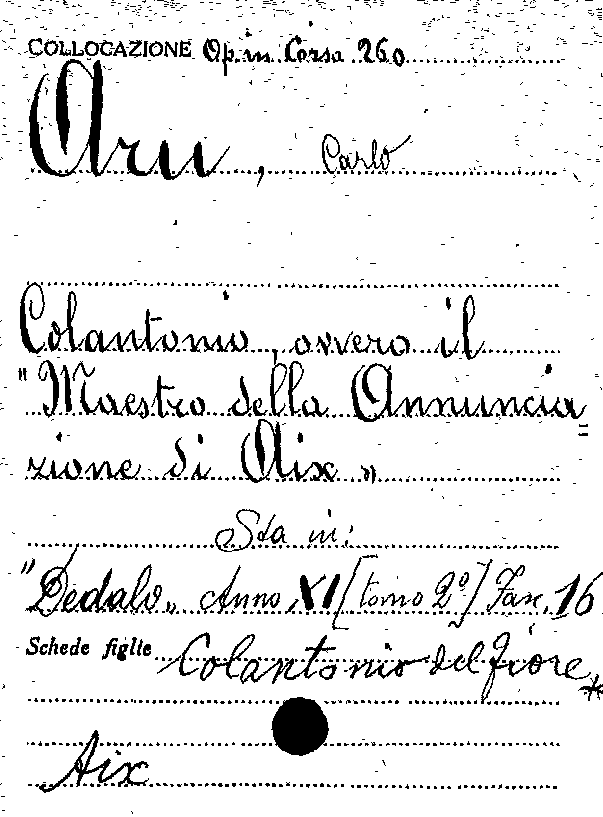 COLLOCAZIONE Op. in Corsa 260
Aru, Carlo
Colantonio, ovvero il
"Maestro della Annuncia
zione di Aix"
Sta in:
"Dedalo" Anno XI [tomo 2º] Fasc. 16
Schede figlie Colantonio del Fiore *
Aix